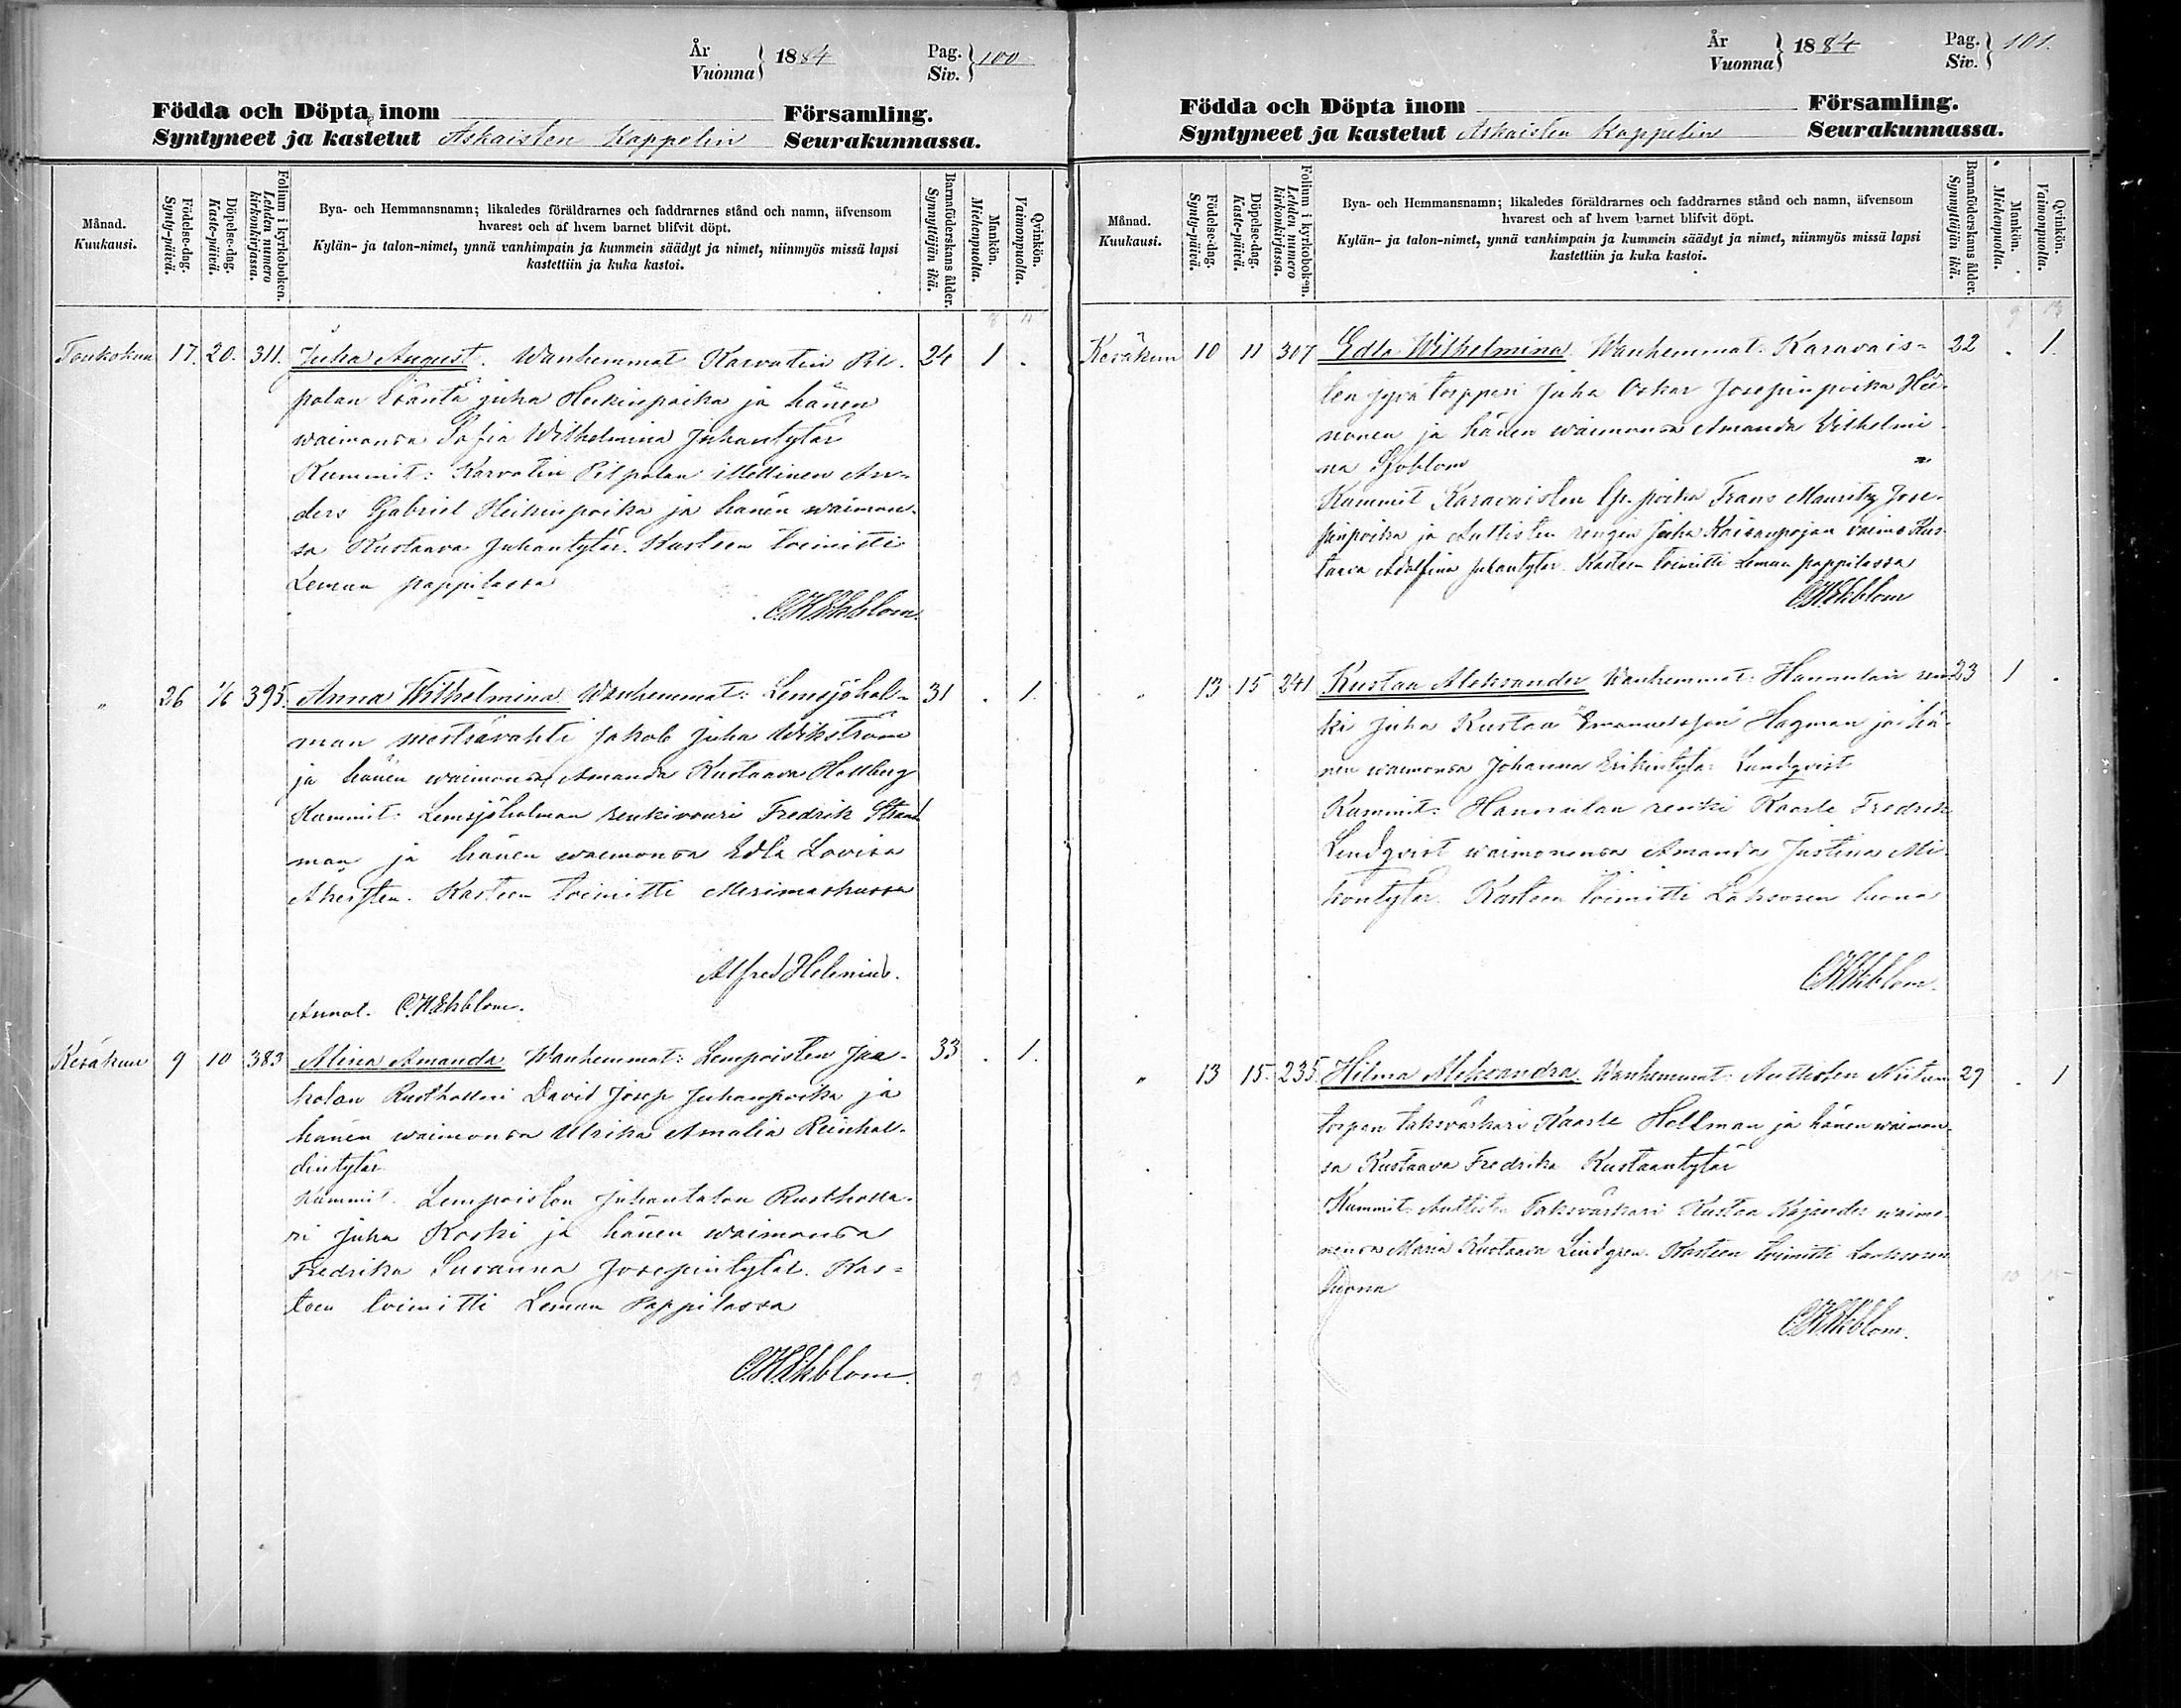 År
Vuonna 1884 Pag.
Siv. 100
Födda och Döpta inom Församling.
Syntyneet ja kastetut Askaisten Kappelin Seurakunnassa.
Månad.
Kuukausi.
Födelse-dag.
Synty-päivä.
Döpelse-dag.
Kaste-päivä.
Folium i kyrkoboken.
Lehden numero
kirkonkirjassa.
Bya- och Hemmansnamn; likaledes föräldrarnes och faddrarnes stånd och namn, äfvensom
hvarest och af hvem barnet blifvit döpt.
Kylän- ja talon-nimet, ynnä vanhimpain ja kummein säädyt ja nimet, niinmyös missä lapsi
kastettiin ja kuka kastoi.
Barnaföderskans ålder.
Synnyttäjän ikä.
Mankön.
Miehenpuolta.
Qvinkön.
Vaimonpuolta.
Toukokuu 17. 20. 311. Juha August. Wanhemmat Karvatin Pil- 24 1 .
polan Isäntä Juha Heikinpoika ja hänen
waimonsa Sofia Wilhelmina Juhantytär
Kummit: Karvatin Pilpolan itellinen An-
ders Gabriel Heikinpoika ja hänen waimon-
sa Kustaava Juhantytär. Kasteen toimitti
Lemun pappilassa
C.H.Ekblom.
" 26 1/6 395. Anna Wilhelmina Wanhemmat: Lemsjöhol- 31 . 1.
man metsävahti Jakob Juha Wikström
ja hänen waimonsa Amanda Kustaava Hallberg
Kummit: Lemsjöholman renkivouri Fredrik Strand
man ja hänen waimonsa Edla Lovisa
Akersten. Kasteen toimitti Merimaskussa
Alfred Helenius.
Annot. C.H.Ekblom.
Kesäkuu 9 10 383 Alina Amanda Wanhemmat: Lempoisten Jaa- 33 . 1.
kolan Rusthollari David Josep Juhanpoika ja
hänen waimonsa Ulrika Amalia Reinhol-
dintytär
Kummit. Lempoisten Juhantalon Rustholla-
ri Juha Koski ja hänen waimonsa
Fredrika Susanna Josepintytär. Kas-
teen toimitti Lemun Pappilassa
C.H.Ekblom.
År
Vuonna 1884 Pag.
Siv. 101.
Födda och Döpta inom Församling.
Syntyneet ja kastetut Askaisten Kappelin Seurakunnassa.
Månad.
Kuukausi.
Födelse-dag.
Synty-päivä.
Döpelse-dag.
Kaste-päivä.
Folium i kyrkoboken.
Lehden numero
kirkonkirjassa.
Bya- och Hemmansnamn; likaledes föräldrarnes och faddrarnes stånd och namn, äfvensom
hvarest och af hvem barnet blifvit döpt.
Kylän- ja talon-nimet, ynnä vanhimpain ja kummein säädyt ja nimet, niinmyös missä lapsi
kastettiin ja kuka kastoi.
Barnaföderskans ålder.
Synnyttäjän ikä.
Mankön.
Miehenpuolta.
Qvinkön.
Vaimonpuolta.
Kesäkuu 10 11 307 Edla Wilhelmina Wanhemmat: Karavais- 22 . 1.
ten torppari Juha Oskar Josepinpoika
nonen ja hänen waimonsa Amanda Vilhelmi-
na Sjöblom
Kummit Karavaisten poika Frans Mauritz Jose-
pinpoika ja Auttisten rengin Juha Kaisanpojan vaimo Kus-
taava Adolfina Juhantytär. Kasteen toimitti Lemun pappilassa
C.H.Ekblom
" 13 15 241 Kustaa Aleksander Wanhemmat: Hannulan ren- 23 1 .
ki Juha Kustaa Emanuelsson Hagman ja hä-
nen waimonsa Johanna Erikintytär Lundqvist
Kummit: Hannulan renki Kaarle Fredrik
Lindqvist waimonensa Amanda Justina Mi-
kontytär. Kasteen toimitti Laksosen luona
C.H.Ekblom.
" 13 15. 235. Hilma Aleksandra. Wanhemmat: Auttisten Niitun 29 . 1
torpan taksvärkari Kaarle Hellman ja hänen waimon-
sa Kustaava Fredrika Kustaantytär
Kummit: Auttisten Taksvärkari Kustaa Kajander waimo-
nensa Maria Kustaava Lindgren. Kasteen toimitti Laaksosen
luona
C.H.Ekblom.